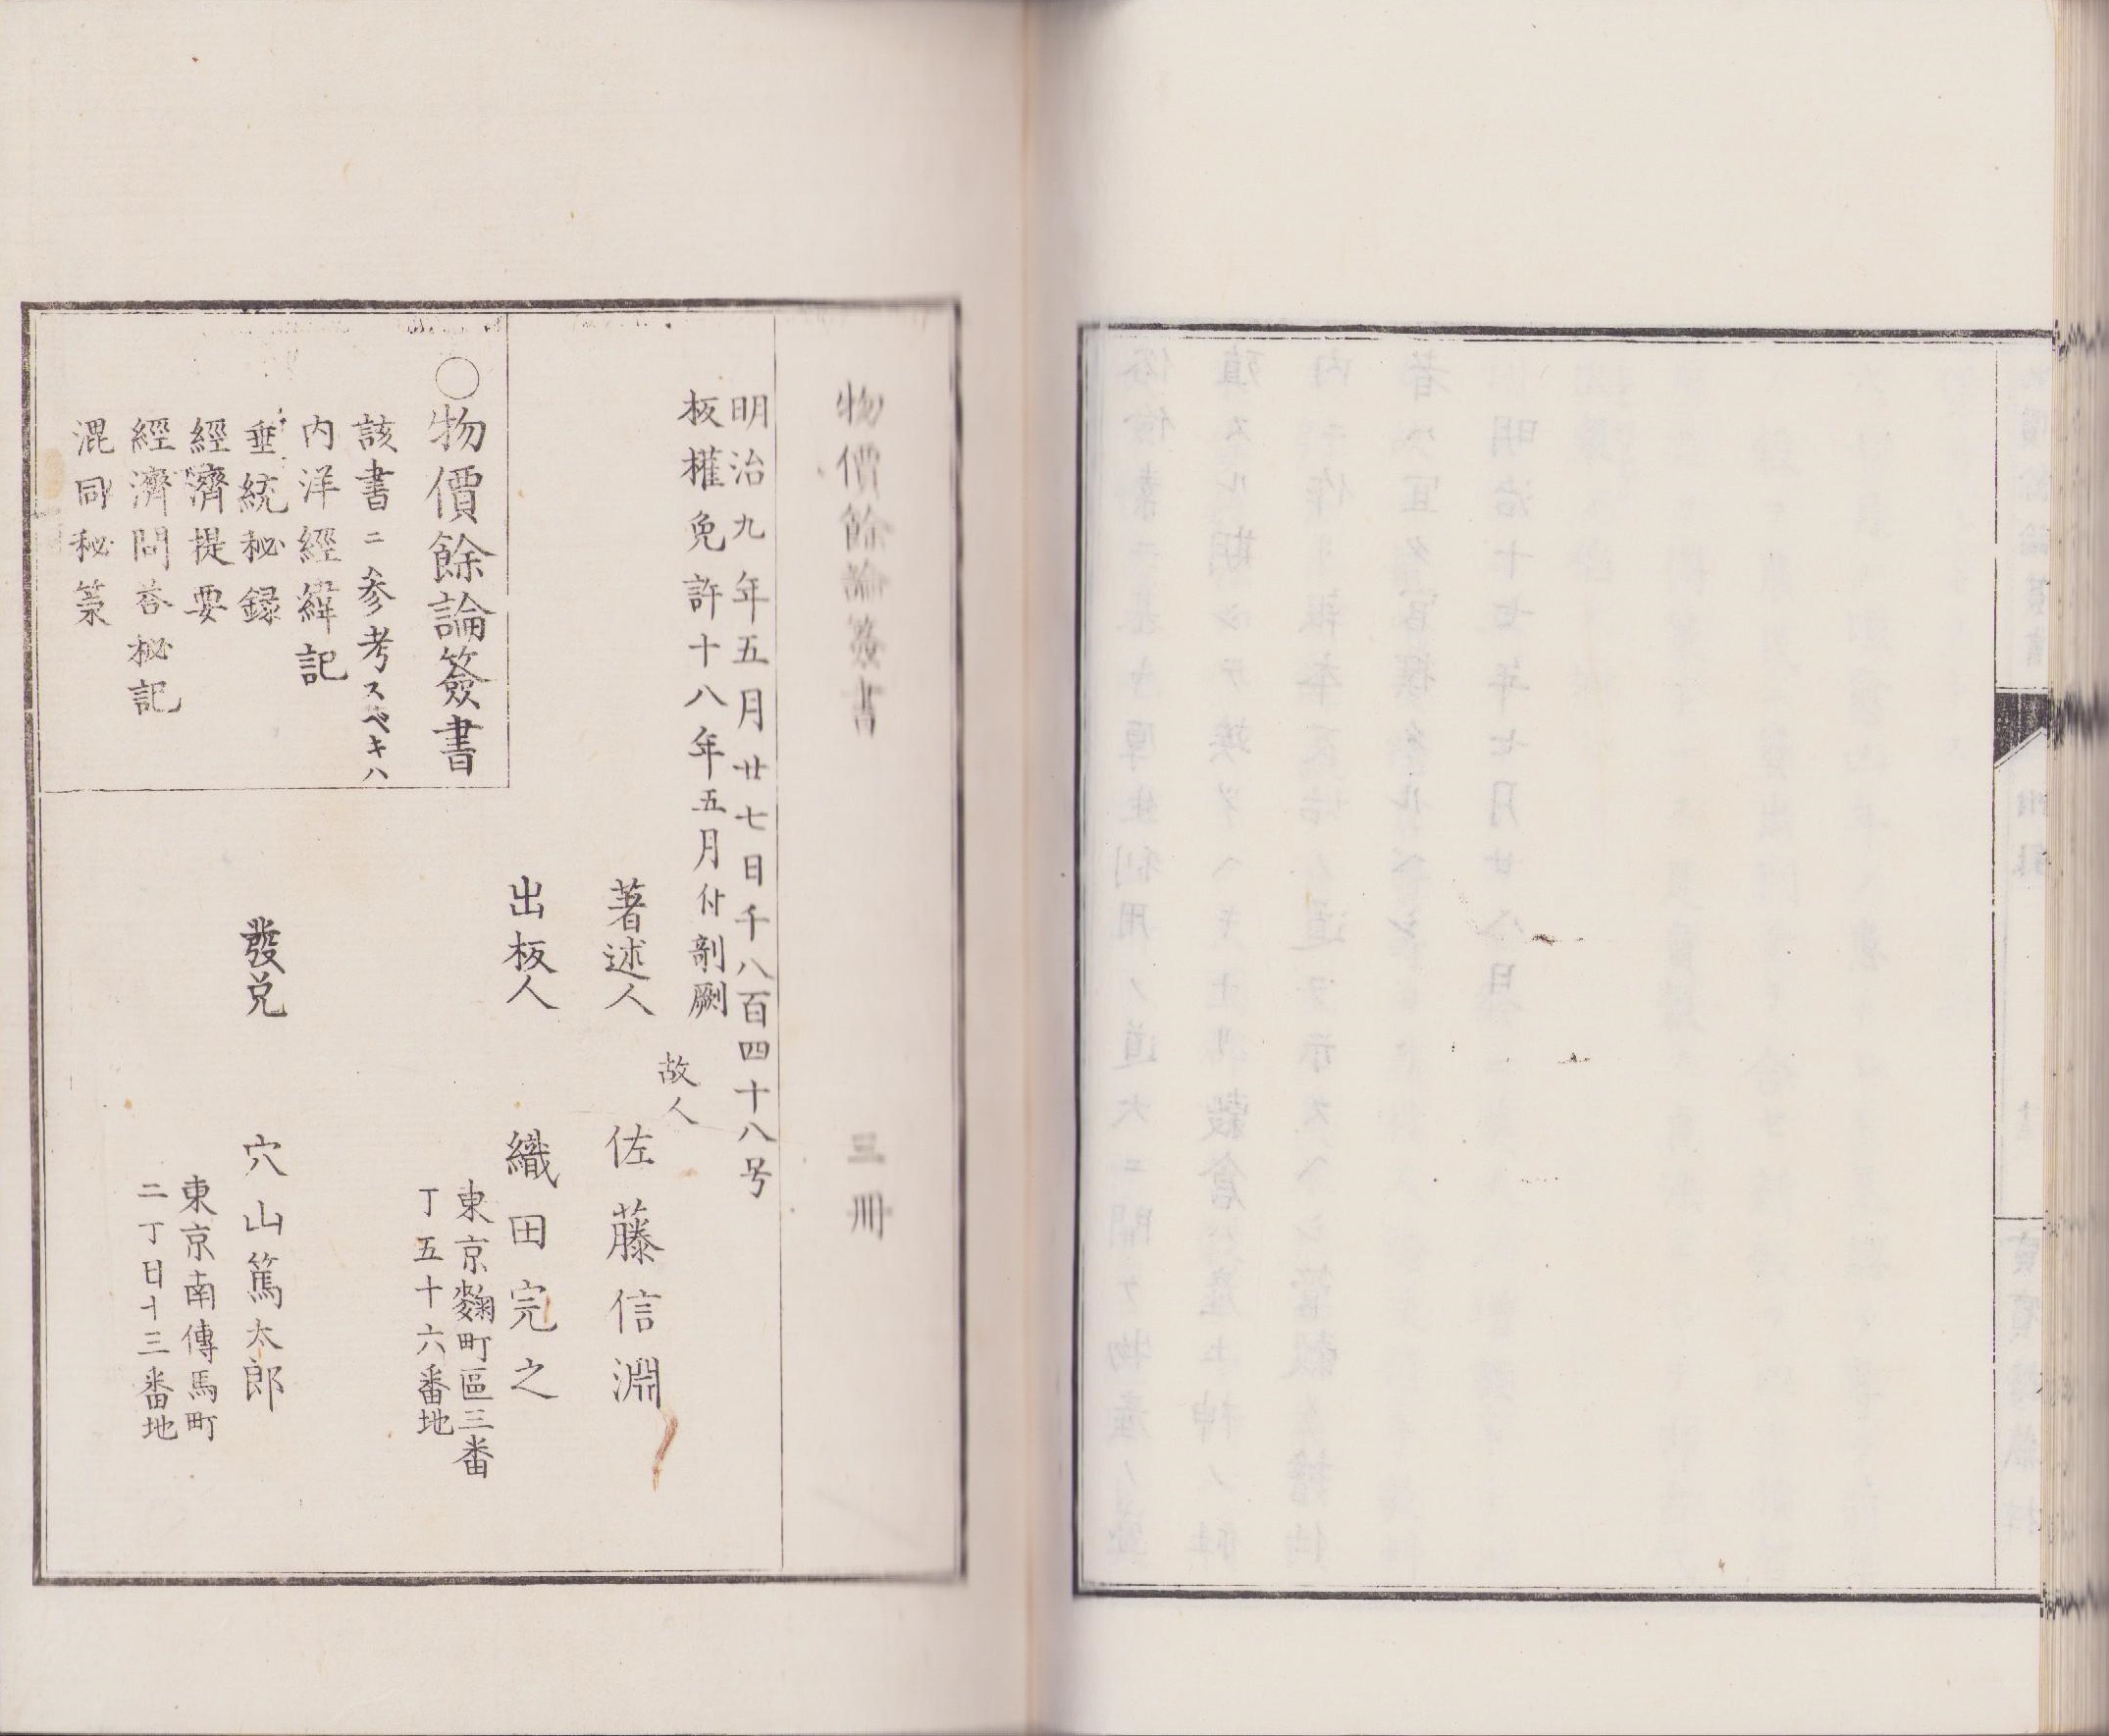 物價餘論簽書　三冊
明治九年五月廿七日千八百四十八号
板權免許十八年五月付剞劂
著述人　故人　佐藤信淵
出板人　織田完之
東京麴町區三番
丁五十六番地
發兌　穴山篤太郎
東京南傳馬町
二丁目十三番地
〇物價餘論簽書
該書ニ參考スベキハ
内洋經緯記
垂統秘録
經濟提要
經濟問答秘記
混同秘策